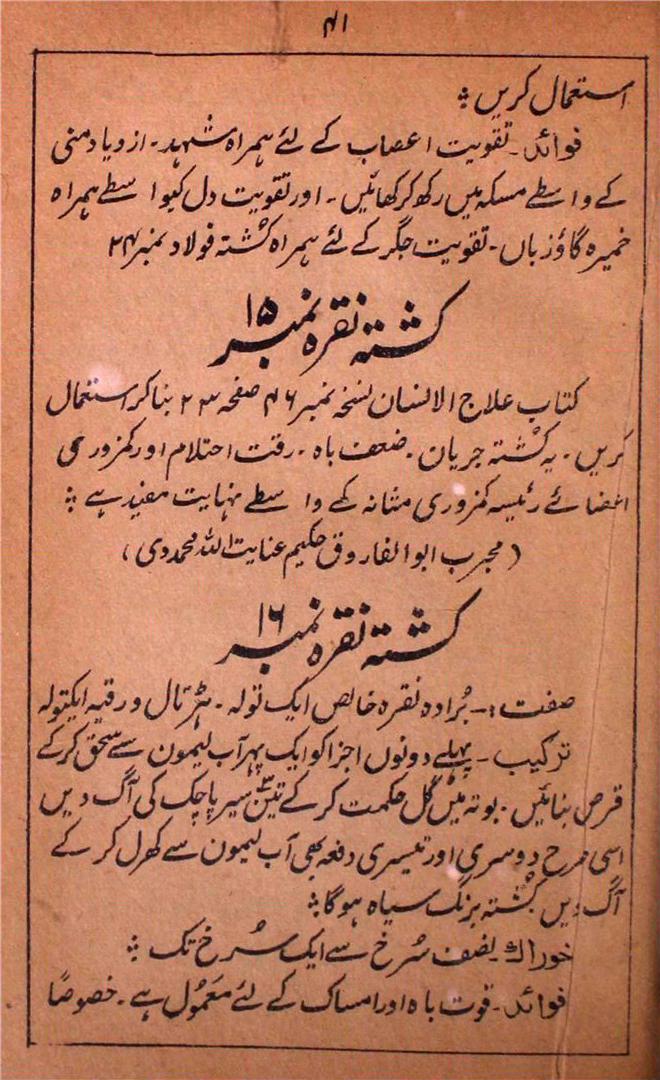 ۴۱
استعمال کریں ؛
فوائد۔ تقویت اعصاب کے لئے ہمراہ شہد۔ ازدیاد منی
کے واسطے مسکہ میں رکھ کر کھائیں۔ اور تقویت دل کیوا سطے ہمراہ
خمیرہ گاؤزباں۔ تقویت جگر کے لئے ہمراہ کشتہ فولاد نمبر ۲۴
کشتہ نقرہ نمبر ۱۵
کتاب علاج الانسان نسخہ نمبر ۴۶ صفحہ ۲۳ بنا کر استعمال
کریں۔ یہ کشتہ جریان۔ ضعف باہ۔ رقت احتلام اور کمزوری
اعضائے رئیسہ کمزوری مثانہ کے واسطے نہایت مفید ہے ؛
(مجرب ابوالفاروق حکیم عنایت اللہ محمددی)
کشتہ نقرہ نمبر ۱۶
صفت :۔ بُرادہ نقرہ خالص ایک تولہ۔ ہڑتال ورقیہ ایکتولہ
ترکیب۔ پہلے دونوں اجزا کو ایک پہر آب لیمون سے سحق کر کے
قرص بنائیں۔ بوتہ میں گل حکمت کر کے تین سیر پاچک کی آگ دیں
اسی طرح دوسری اور تیسری دفعہ بھی آب لیمون سے کھرل کر کے
آگ دیں کشتہ برنگ سیاہ ہوگا ؛
خوراک۔ نصف سُرخ سے ایک سُرخ تک ؛
فوائد۔ قوت باہ اور امساک کے لئے معمُول ہے۔ خصوصًا